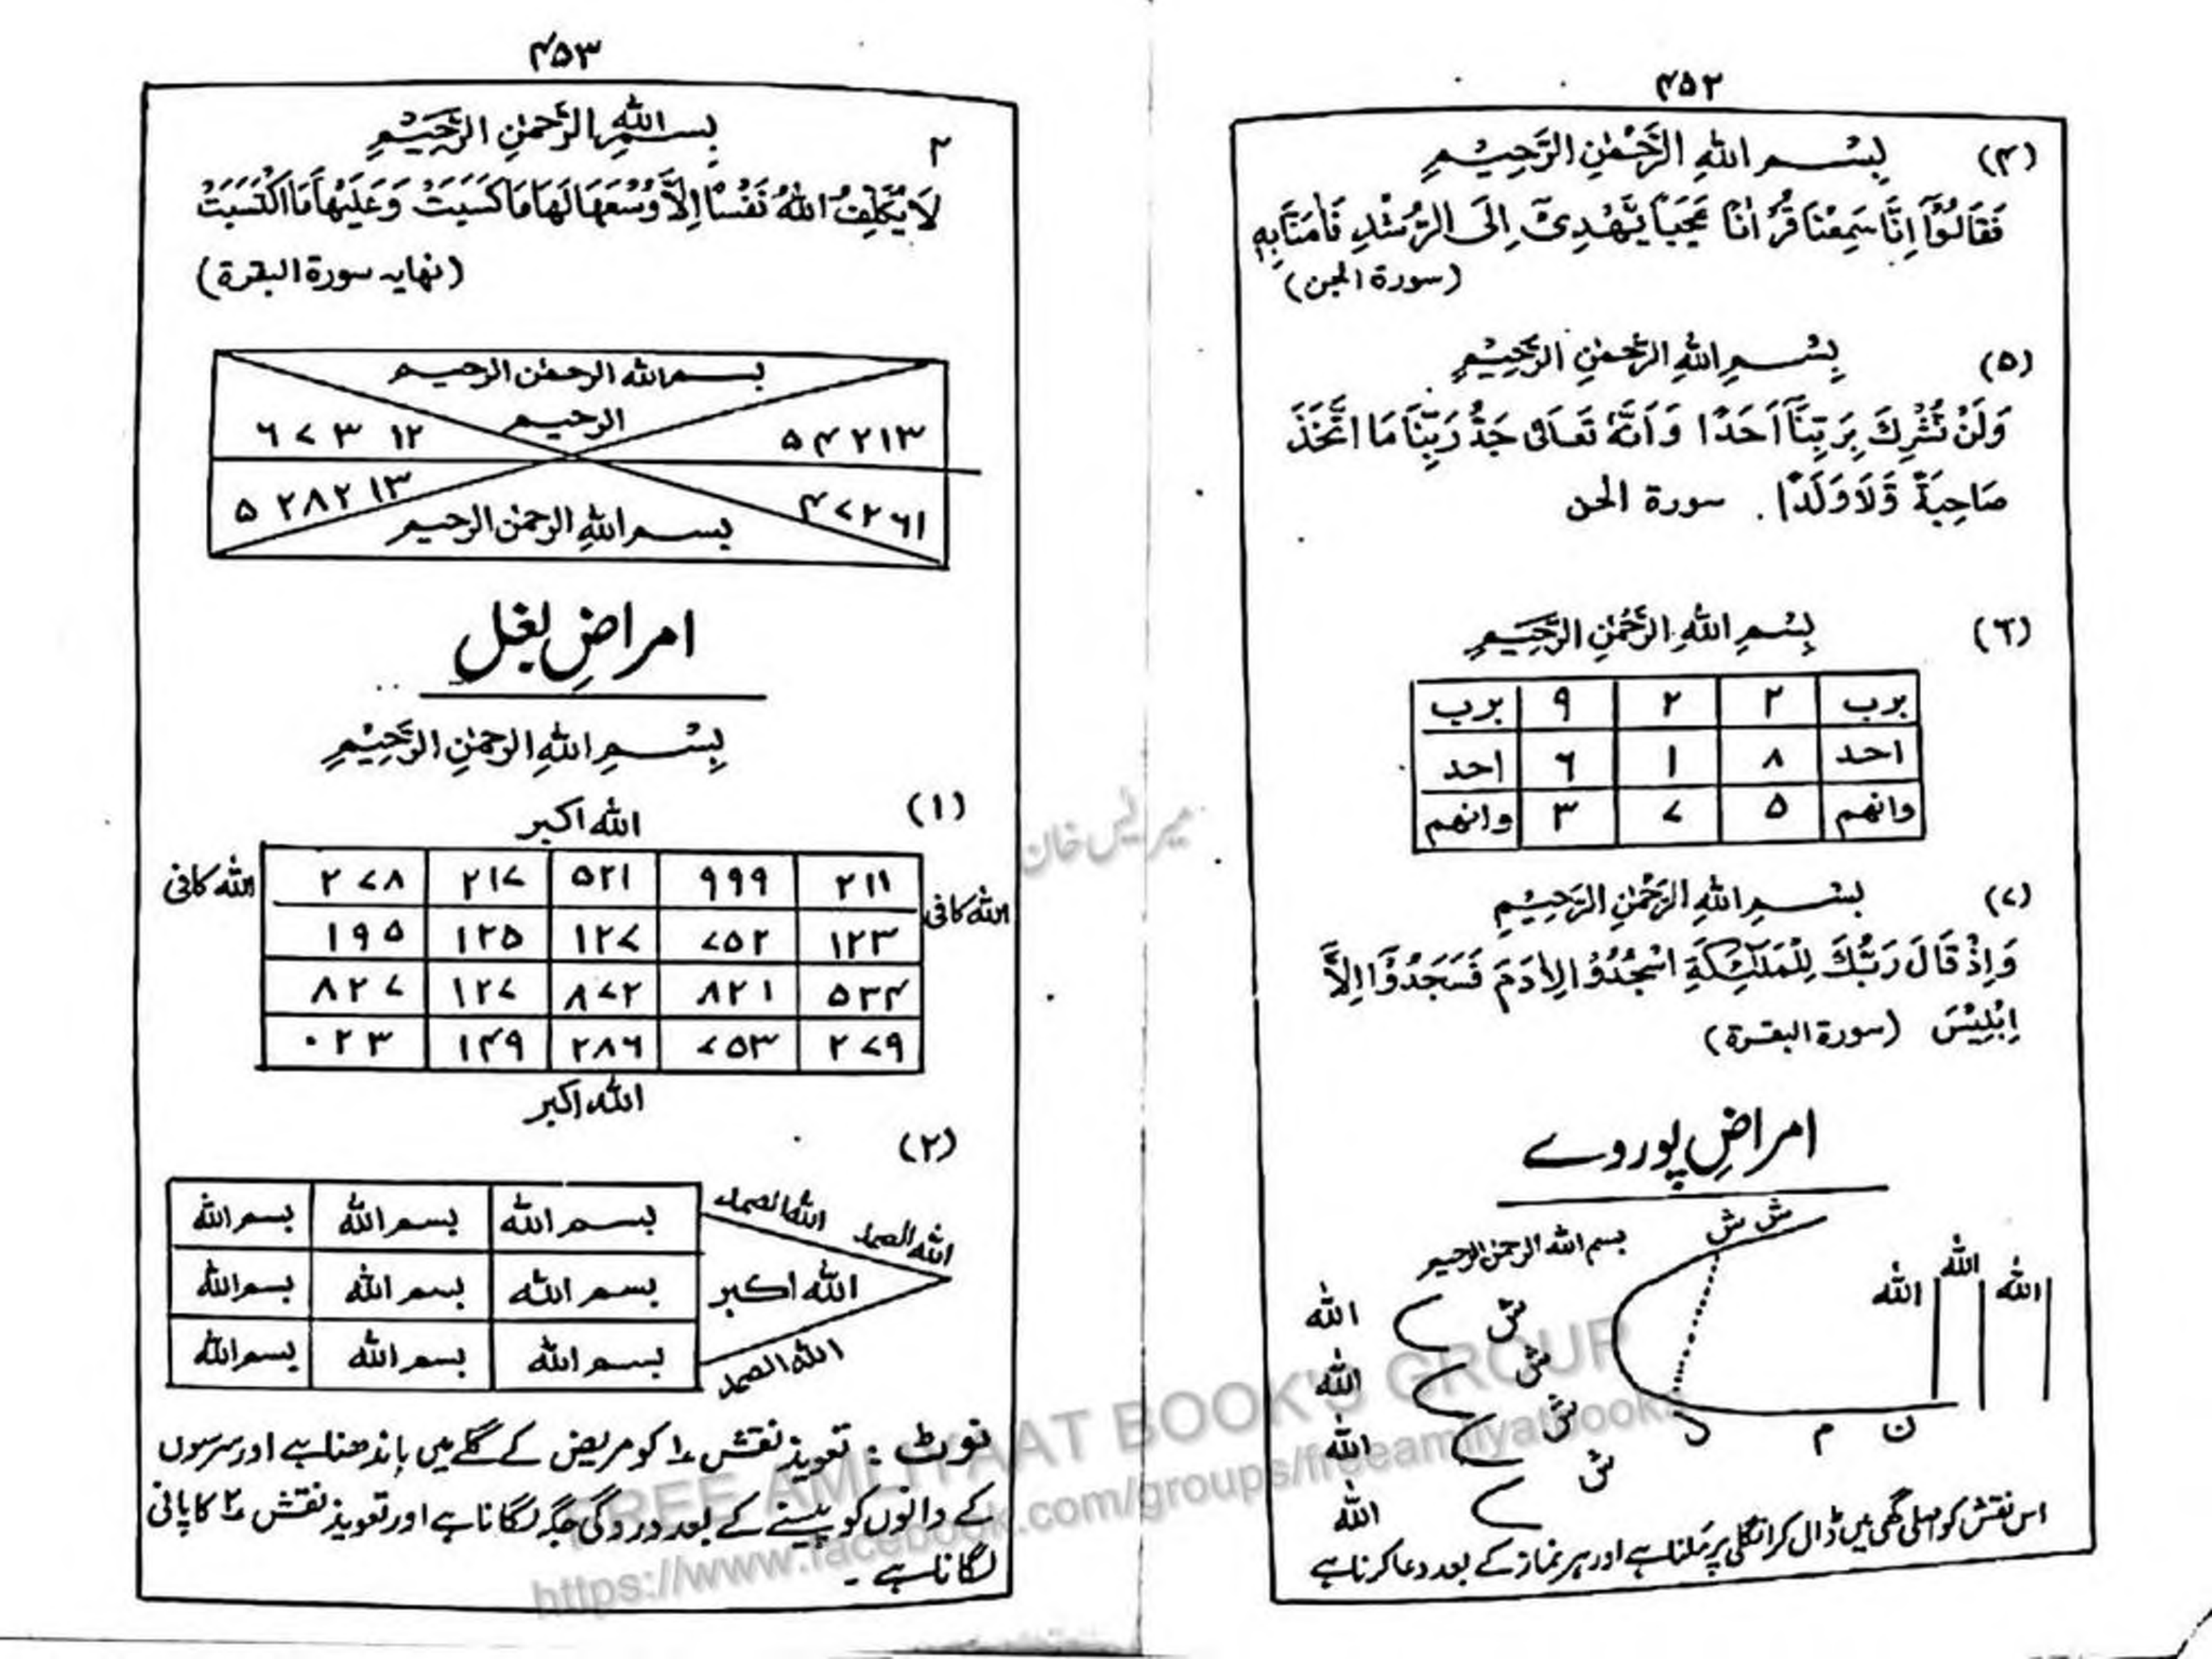 ۴۵۲
(۴) بِسْمِ اللهِ الرَّحْمٰنِ الرَّحِيْمِ
فَقَالُوْٓا اِنَّا سَمِعْنَا قُرْاٰنًا عَجَبًا يَّهْدِىْٓ اِلَى الرُّشْدِ فَاٰمَنَّا بِهٖ
(سورة الجن)
(۵) بِسْمِ اللهِ الرَّحْمٰنِ الرَّحِيْمِ
وَلَنْ نُّشْرِكَ بِرَبِّنَآ اَحَدًا وَاَنَّهٗ تَعَالٰى جَدُّ رَبِّنَا مَا اتَّخَذَ
صَاحِبَةً وَّلَا وَلَدًا. سورة الجن
(٦) بِسْمِ اللهِ الرَّحْمٰنِ الرَّحِيْمِ
برب ۲ ۲ ۹ برب
احد ۸ ۱ ۶ احد
وانهم ۵ ۷ ۳ وانهم
(۷) بِسْمِ اللهِ الرَّحْمٰنِ الرَّحِيْمِ
وَاِذْ قَالَ رَبُّكَ لِلْمَلٰٓئِكَةِ اسْجُدُوْا لِاٰدَمَ فَسَجَدُوْٓا اِلَّآ
اِبْلِيْسَ (سورة البقرة)
امراضِ پوروے
بسم الله الرحمن الرحيم
ش ش
الله الله الله
ش الله
ش الله
ش الله
ش الله
ن م د
اس نقش کو اصلی گھی میں ڈال کر انگلی پر ملنا ہے اور ہر نماز کے بعد دعا کرنا ہے
۴۵۳
۲ بِسْمِ اللهِ الرَّحْمٰنِ الرَّحِيْمِ
لَا يُكَلِّفُ اللهُ نَفْسًا اِلَّا وُسْعَهَا لَهَا مَا كَسَبَتْ وَعَلَيْهَا مَا اكْتَسَبَتْ
(نهايه سورة البقرة)
بسم الله الرحمٰن الرحيم
الرحيم
۵ ۴ ۲ ۱۳
۶ ۷ ۳ ۱۲
۴ ۷ ۲ ۶۱
۵ ۲۸۲ ۱۳
بسم اللهِ الرحمٰن الرحيم
امراضِ بغل
بِسْمِ اللهِ الرحمٰنِ الرَّحِيْمِ
(۱)
الله اکبر
الله کافی
۲۱۱ ۹۹۹ ۵۲۱ ۲۱۷ ۲۷۸
۱۲۳ ۷۵۲ ۱۲۷ ۱۲۵ ۱۹۵
۵۳۴ ۸۲۱ ۸۷۲ ۱۲۷ ۸۲۷
۲۷۹ ۷۵۳ ۲۸۶ ۱۴۹ ۰۲۳
الله کافی
الله اکبر
(۲)
الله الصمد الله الصمد
الله اکبر
الله الصمد
بسم الله بسم الله بسم الله
بسم الله بسم الله بسم الله
بسم الله بسم الله بسم الله
نوٹ : تعویذ نقش ۱ کو مریض کے گلے میں باندھنا ہے اور سرسوں
کے دانوں کو پیسنے کے بعد درد کی جگہ لگانا ہے اور تعویذ نقش ۲ کا پانی
لگانا ہے ۔
FREE AMLIYAAT BOOK'S GROUP
https://www.facebook.com/groups/freeamliyatbooks